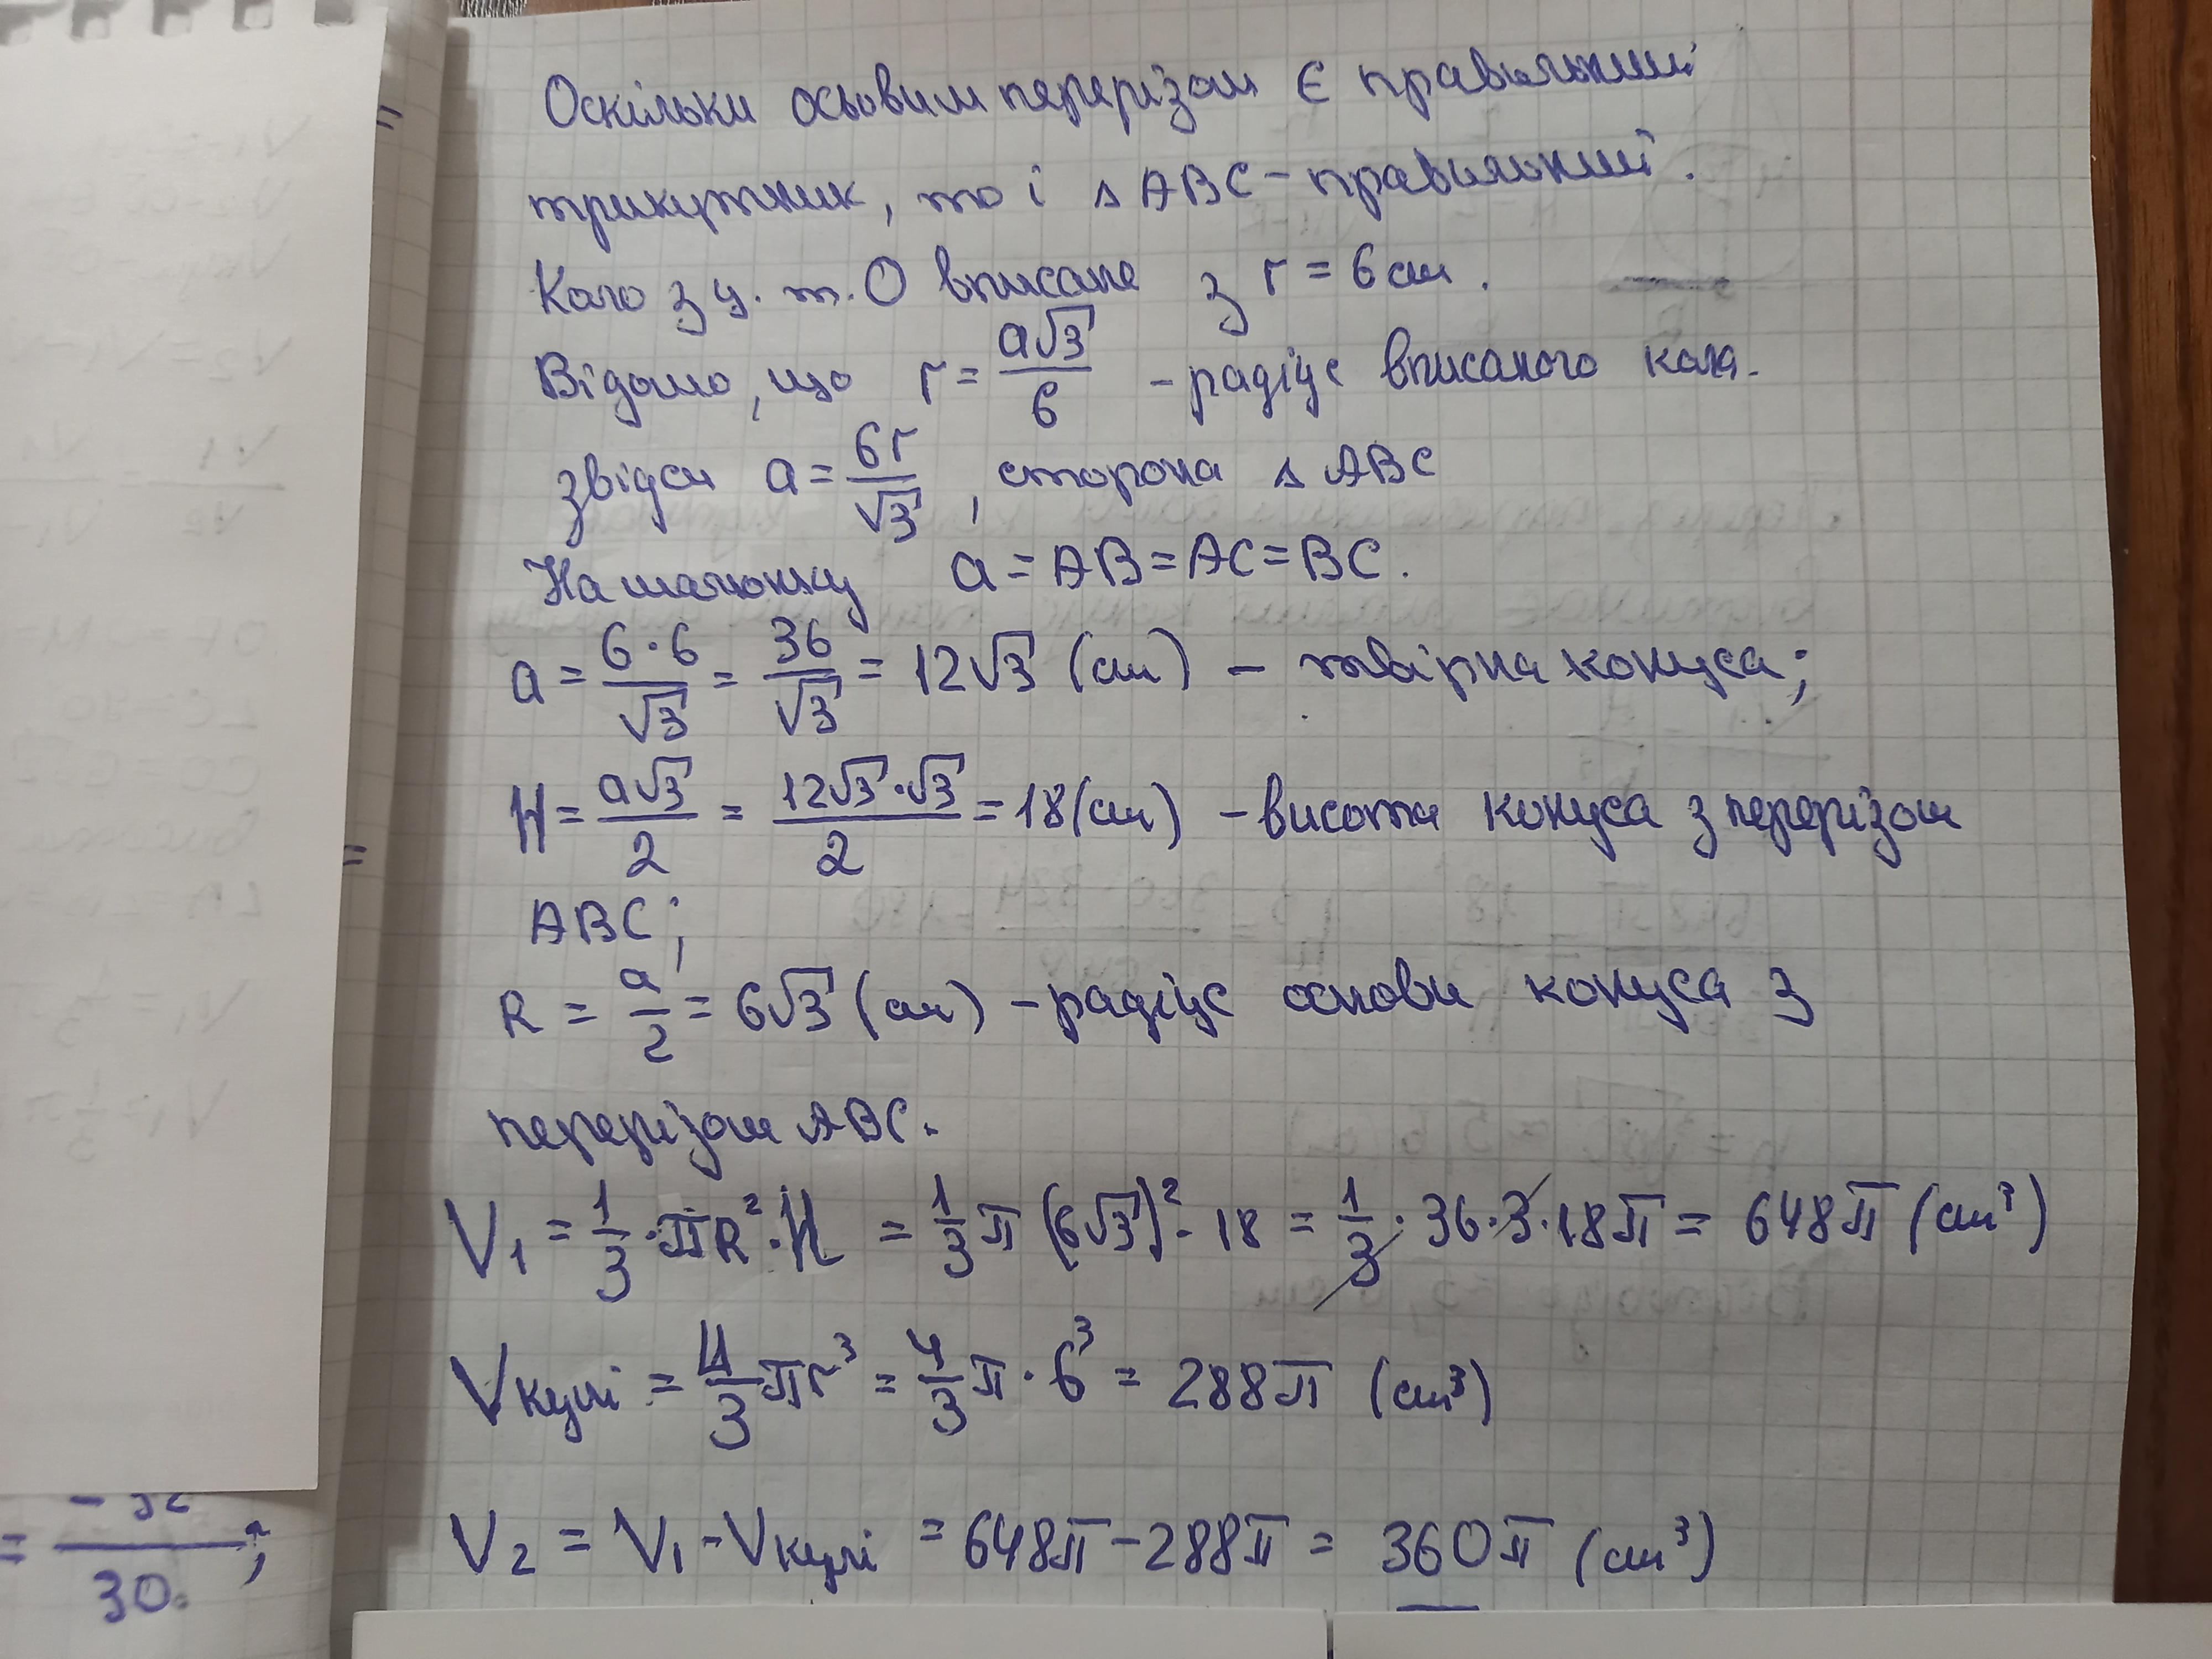 Оскільки осьовим перерізом є правильний
трикутник, то і △ABC - правильний.
Коло з ц. т. О вписане з r = 6 см.
Відомо, що r = a√3/6 - радіус вписаного кола.
звідси a = 6r/√3, сторона △ABC
На малюнку a = AB = AC = BC.
a = 6·6/√3 = 36/√3 = 12√3 (см) - твірна конуса;
H = a√3/2 = 12√3·√3/2 = 18 (см) - висота конуса з перерізом
ABC;
R = a/2 = 6√3 (см) - радіус основи конуса з
перерізом ABC.
V₁ = 1/3 · πR² · H = 1/3 π (6√3)² · 18 = 1/3 · 36 · 3 · 18π = 648π (см³)
Vкулі = 4/3 πr³ = 4/3 π · 6³ = 288π (см³)
V₂ = V₁ - Vкулі = 648π - 288π = 360π (см³)
30